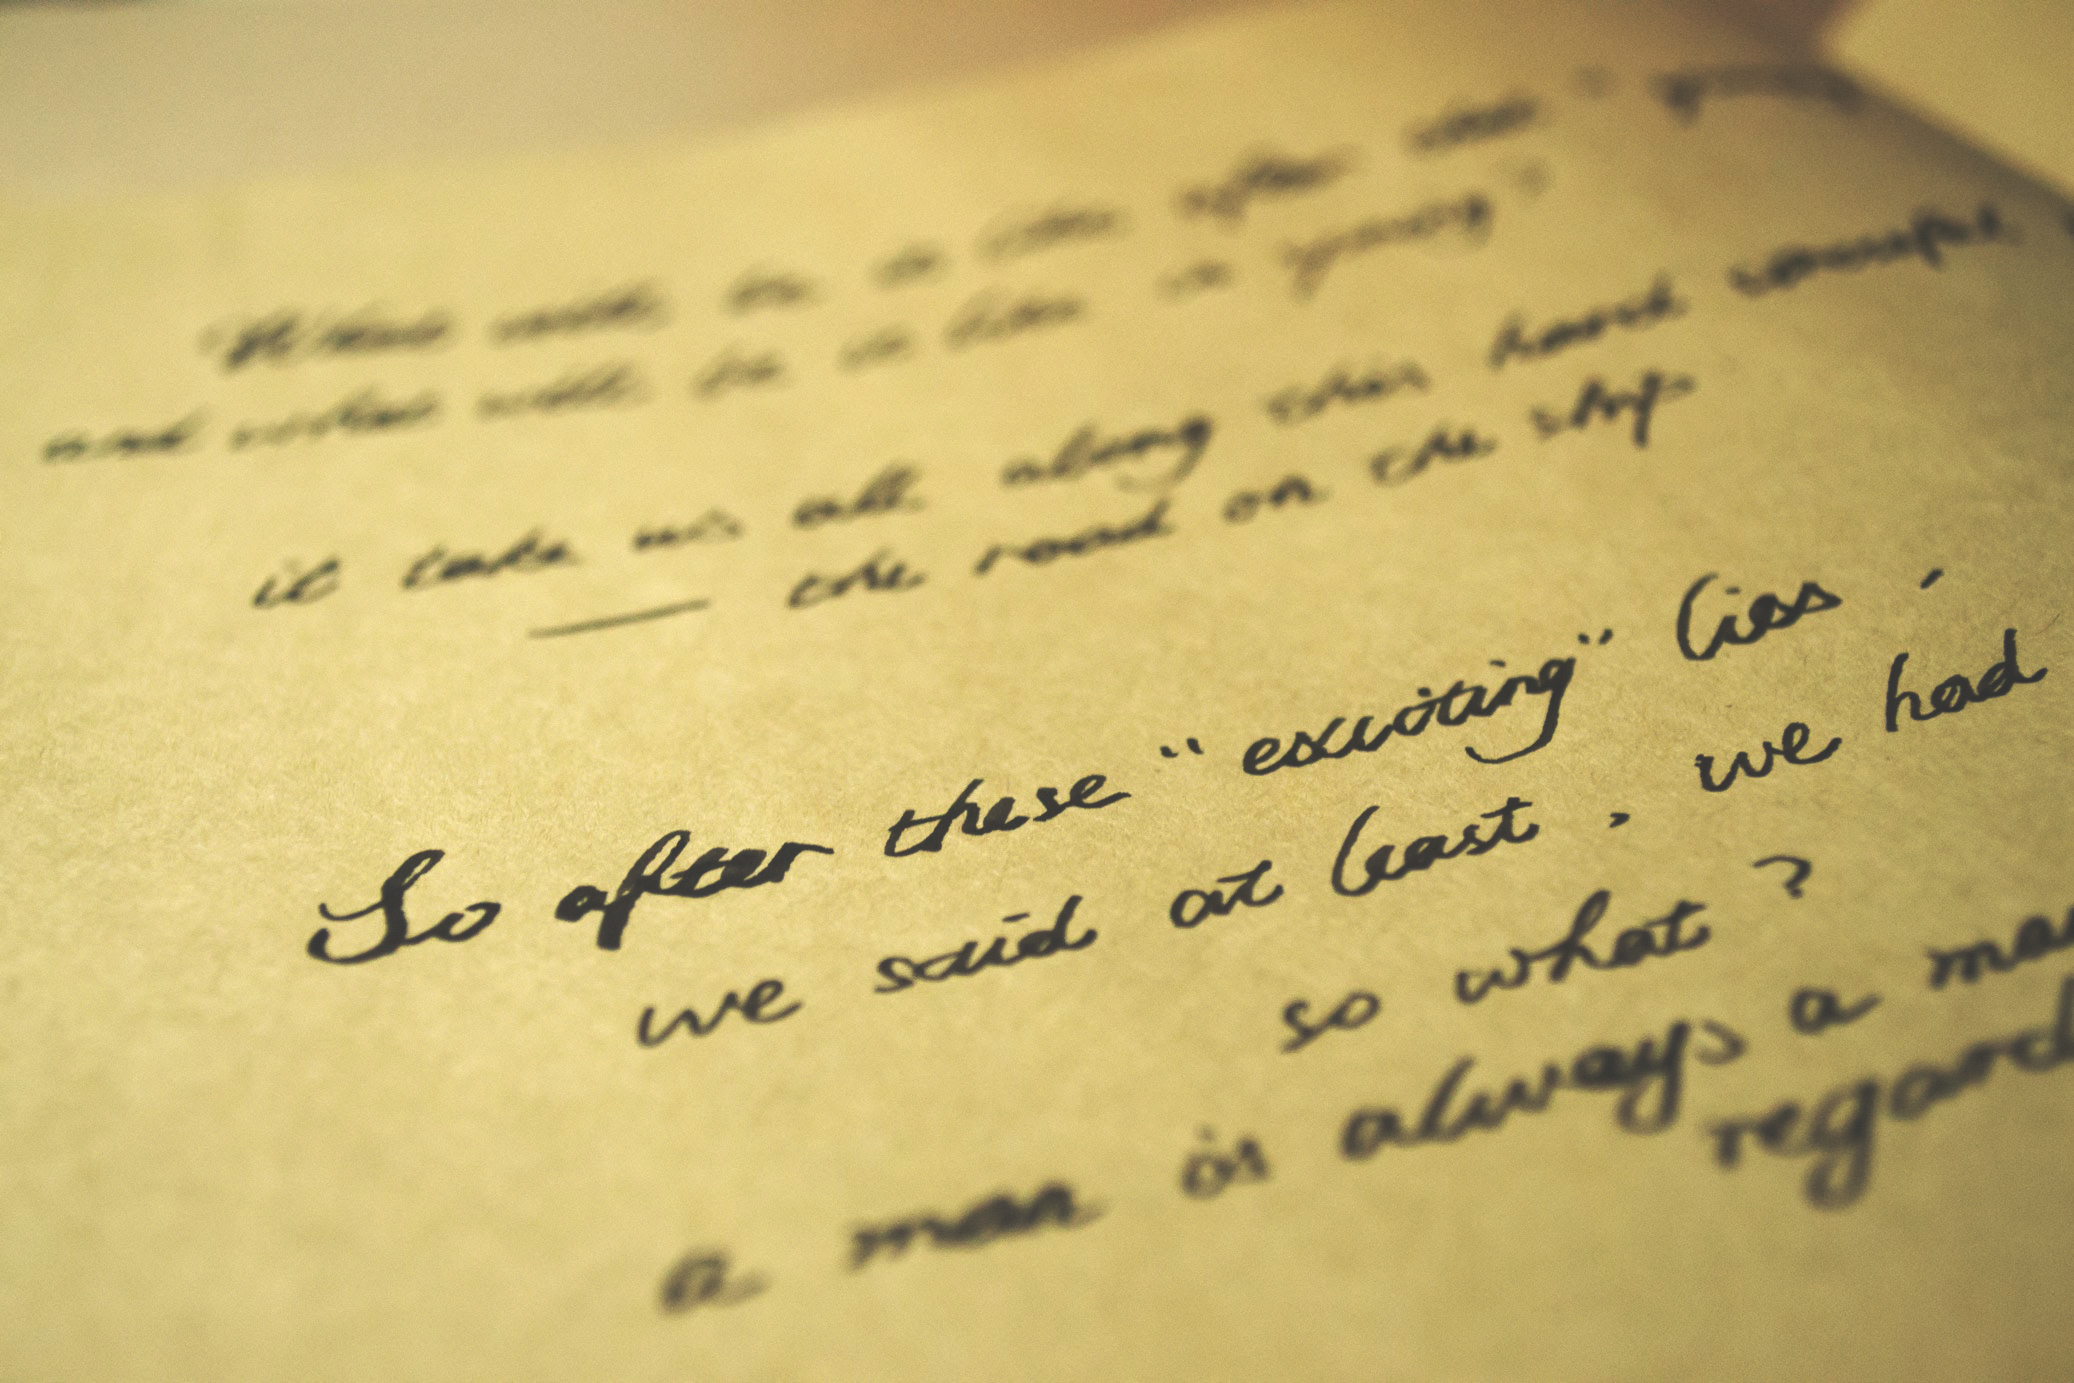 What will be a like after the " young
and what will be a like in young"
it take us all along this hard
the road on the ship
So after these "exciting" lies,
we said at least, we had
so what?
a man is always a man
regard